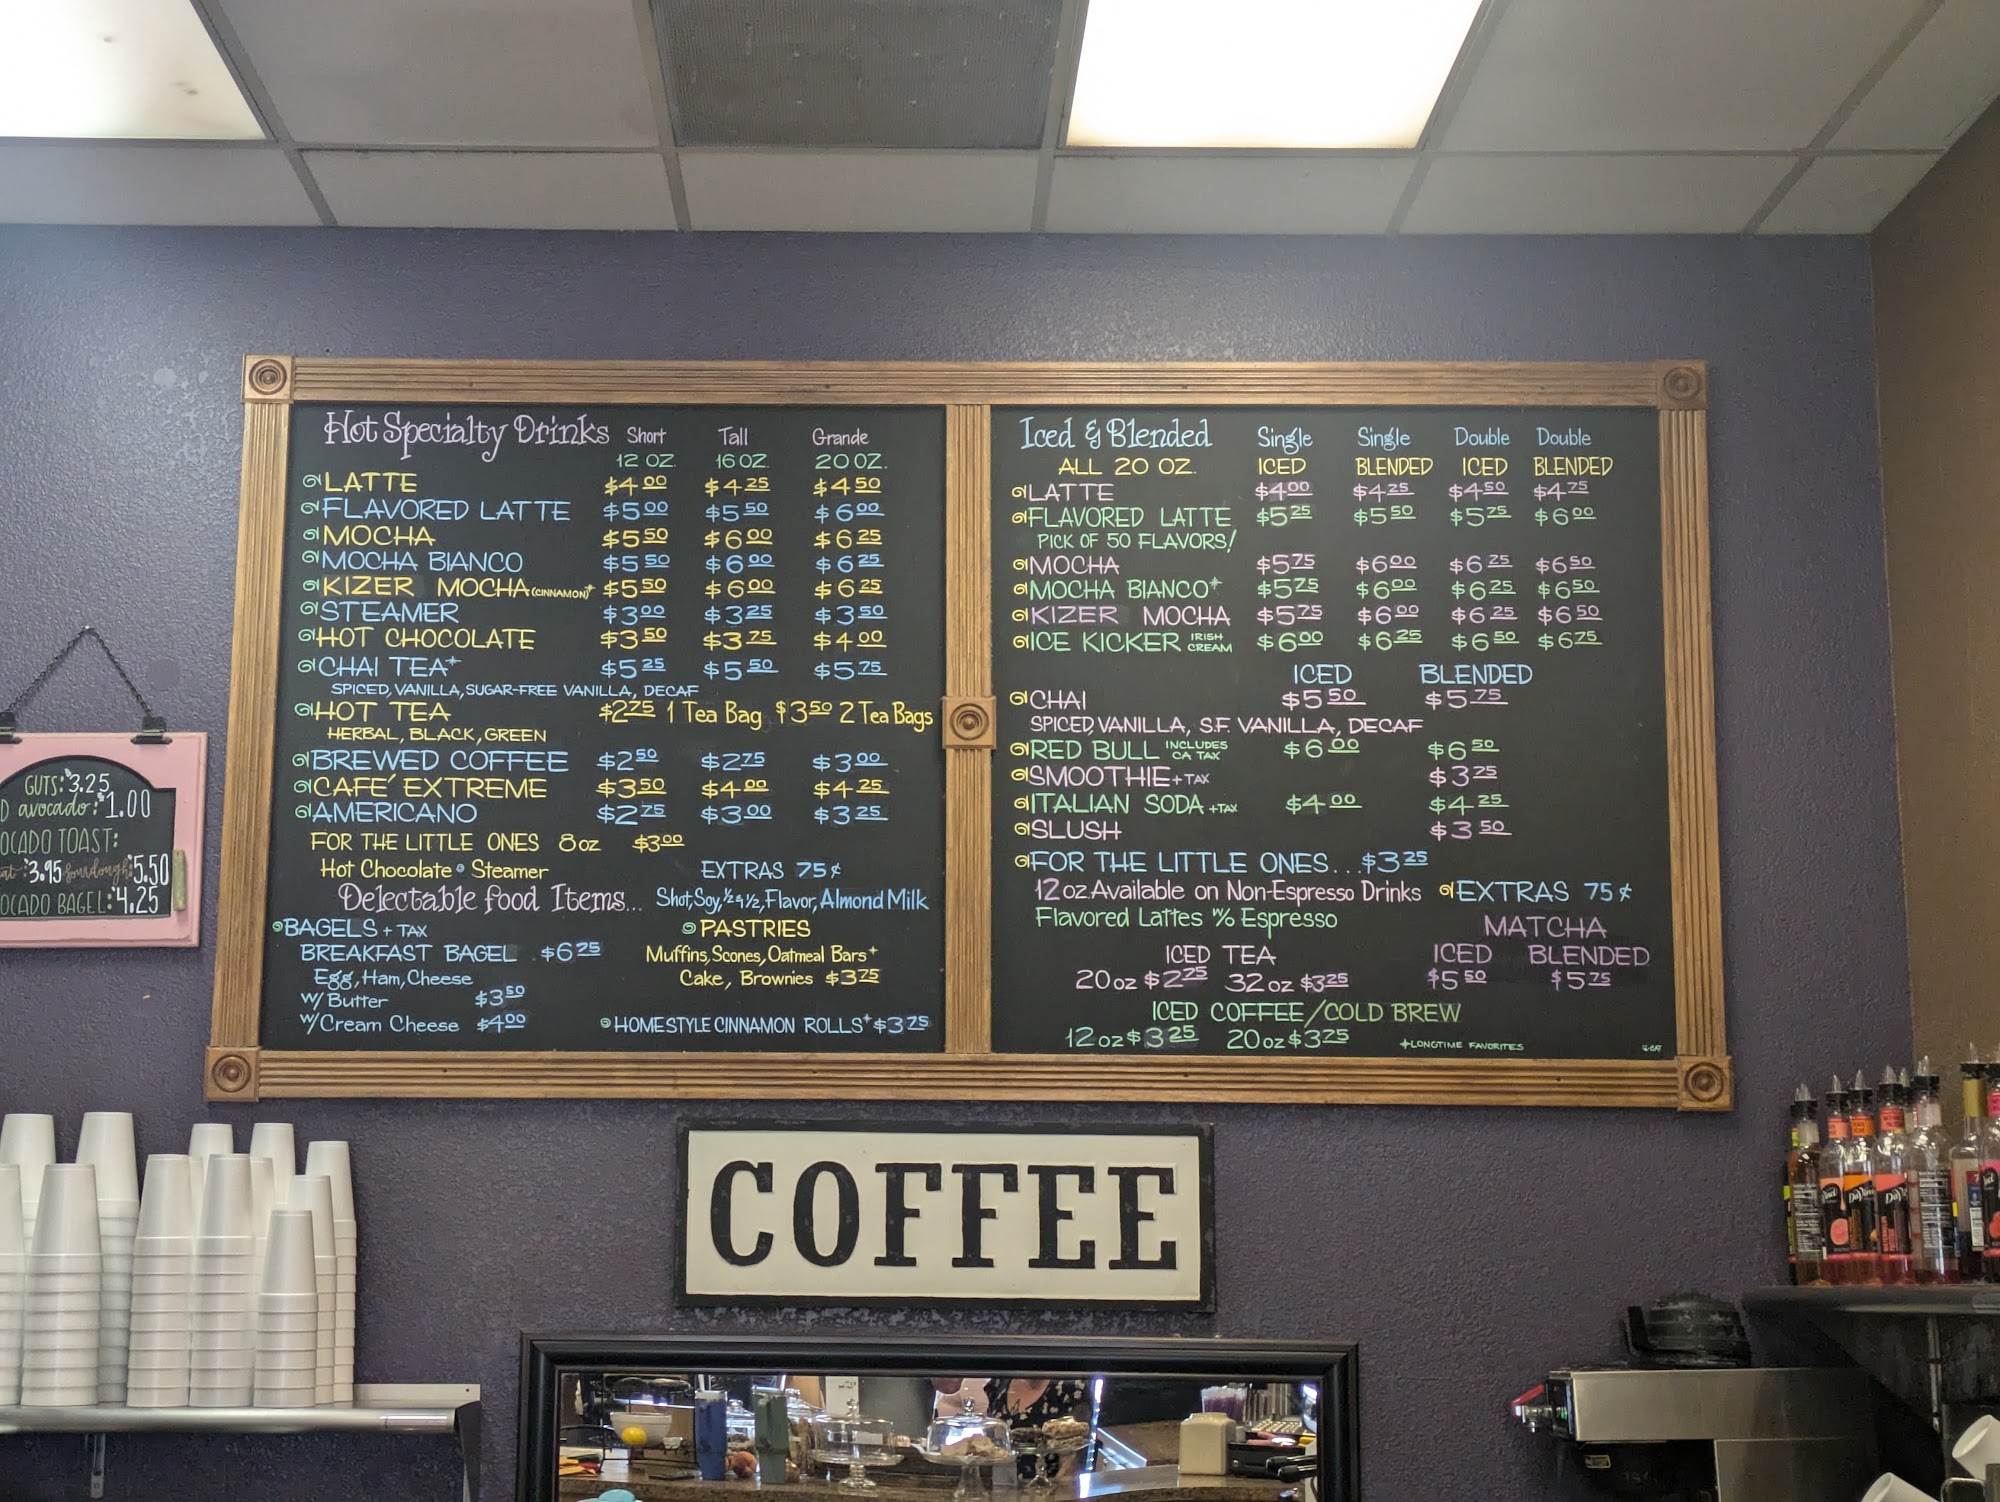 Hot Specialty Drinks Short Tall Grande
12 OZ. 16 OZ. 20 OZ.
LATTE $4 00 $4 25 $4 50
FLAVORED LATTE $5 00 $5 50 $6 00
MOCHA $5 50 $6 00 $6 25
MOCHA BIANCO $5 50 $6 00 $6 25
KIZER MOCHA (CINNAMON)* $5 50 $6 00 $6 25
STEAMER $3 00 $3 25 $3 50
HOT CHOCOLATE $3 50 $3 75 $4 00
CHAI TEA* $5 25 $5 50 $5 75
SPICED, VANILLA, SUGAR-FREE VANILLA, DECAF
HOT TEA $2 75 1 Tea Bag $3 50 2 Tea Bags
HERBAL, BLACK, GREEN
BREWED COFFEE $2 50 $2 75 $3 00
CAFÉ EXTREME $3 50 $4 00 $4 25
AMERICANO $2 75 $3 00 $3 25
FOR THE LITTLE ONES 8 oz $3 00
Hot Chocolate • Steamer
EXTRAS 75¢
Shot, Soy, ½ & ½, Flavor, Almond Milk
Delectable food Items...
BAGELS + TAX
BREAKFAST BAGEL $6 25
Egg, Ham, Cheese
w/ Butter $3 50
w/ Cream Cheese $4 00
PASTRIES
Muffins, Scones, Oatmeal Bars*
Cake, Brownies $3 75
HOMESTYLE CINNAMON ROLLS* $3 75
Iced & Blended Single Single Double Double
ALL 20 OZ. ICED BLENDED ICED BLENDED
LATTE $4 00 $4 25 $4 50 $4 75
FLAVORED LATTE $5 25 $5 50 $5 75 $6 00
PICK OF 50 FLAVORS!
MOCHA $5 75 $6 00 $6 25 $6 50
MOCHA BIANCO* $5 75 $6 00 $6 25 $6 50
KIZER MOCHA $5 75 $6 00 $6 25 $6 50
ICE KICKER IRISH CREAM $6 00 $6 25 $6 50 $6 75
ICED BLENDED
CHAI $5 50 $5 75
SPICED, VANILLA, S.F. VANILLA, DECAF
RED BULL INCLUDES CA TAX $6 00 $6 50
SMOOTHIE + TAX $3 75
ITALIAN SODA + TAX $4 00 $4 25
SLUSH $3 50
FOR THE LITTLE ONES...$3 25
12 oz. Available on Non-Espresso Drinks
Flavored Lattes w/o Espresso
EXTRAS 75¢
MATCHA
ICED BLENDED
$5 50 $5 75
ICED TEA
20 oz $2 75 32 oz $3 25
ICED COFFEE/COLD BREW
12 oz $3 25 20 oz $3 75
*LONGTIME FAVORITES
GUTS: 3.25
avocado: $1.00
TOAST:
3.95 sourdough 5.50
BAGEL: 4.25
COFFEE